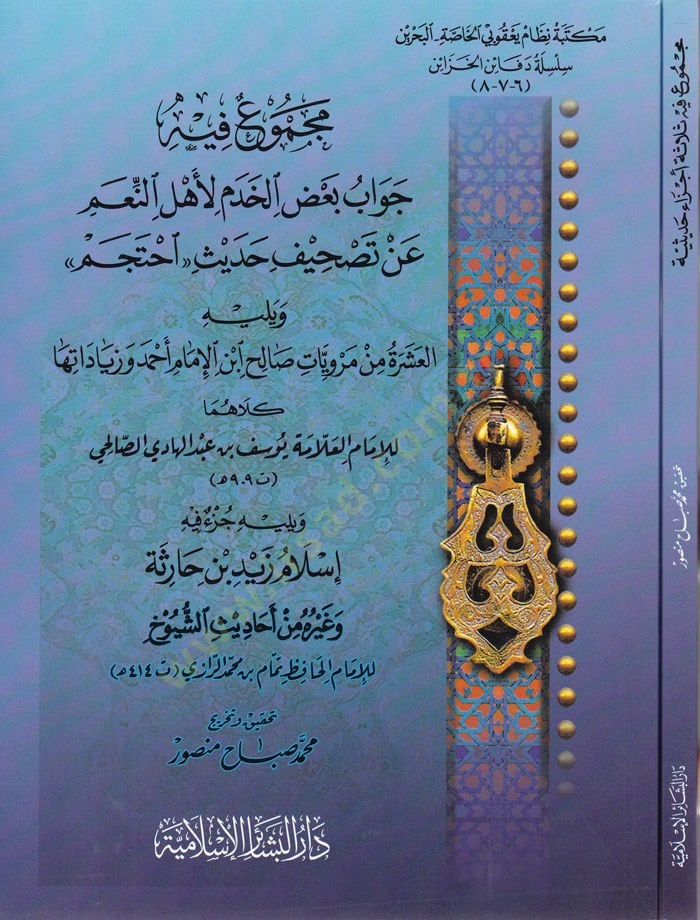 مكتبة نظام يعقوبي الخاصة - البحرين
سلسلة دفائن الخزائن
(٦-٧-٨)
مجموع فيه
جواب بعض الخدم لأهل النعم
عن تصحيف حديث «احتجم»
ويليه
العشرة من مرويات صالح ابن الإمام أحمد وزياداتها
كلاهما
للإمام العلامة يوسف بن عبد الهادي الصالحي
(ت ٩٠٩ هـ)
ويليه جزء فيه
إسلام زيد بن حارثة
وغيره من أحاديث الشيوخ
للإمام الحافظ تمام بن محمد الرازي (ت ٤١٤ هـ)
تحقيق وتخريج
محمد صباح منصور
دار البشائر الإسلامية
مجموع فيه ثلاثة أجزاء حديثية
تحقيق محمد صباح منصور
دار البشائر الإسلامية